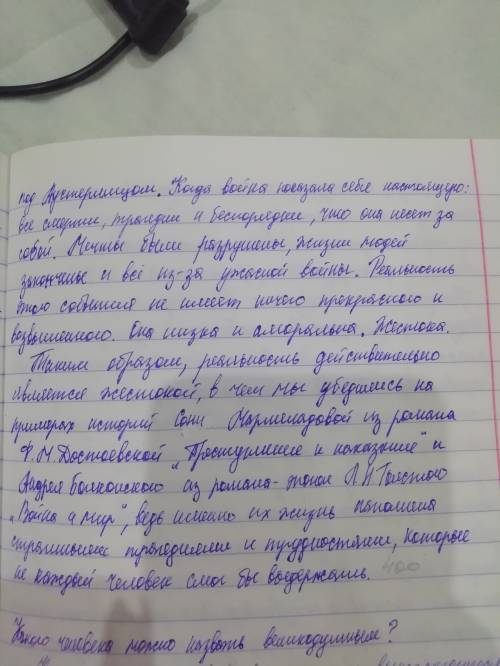 под Аустерлицом. Когда война показала себя настоящую:
все смерти, трагедии и беспорядки, что она несёт за
собой. Мечты были разрушены, жизни людей
закончены и всё из-за ужасной войны. Реальность
этого события не имеет ничего прекрасного и
возвышенного. Она низка и аморальна. Жестока.
Таким образом, реальность действительно
является жестокой, в чем мы убедились на
примерах историй Сони Мармеладовой из романа
Ф.М.Достоевской „Преступление и наказание" и
Андрея Болконского из романа-эпопеи Л.Н.Толстого
„Война и мир", ведь именно их жизнь
страшными трагедиями и трудностями, которые
не каждый человек смог бы выдержать. 400
Какого человека можно назвать великодушным?